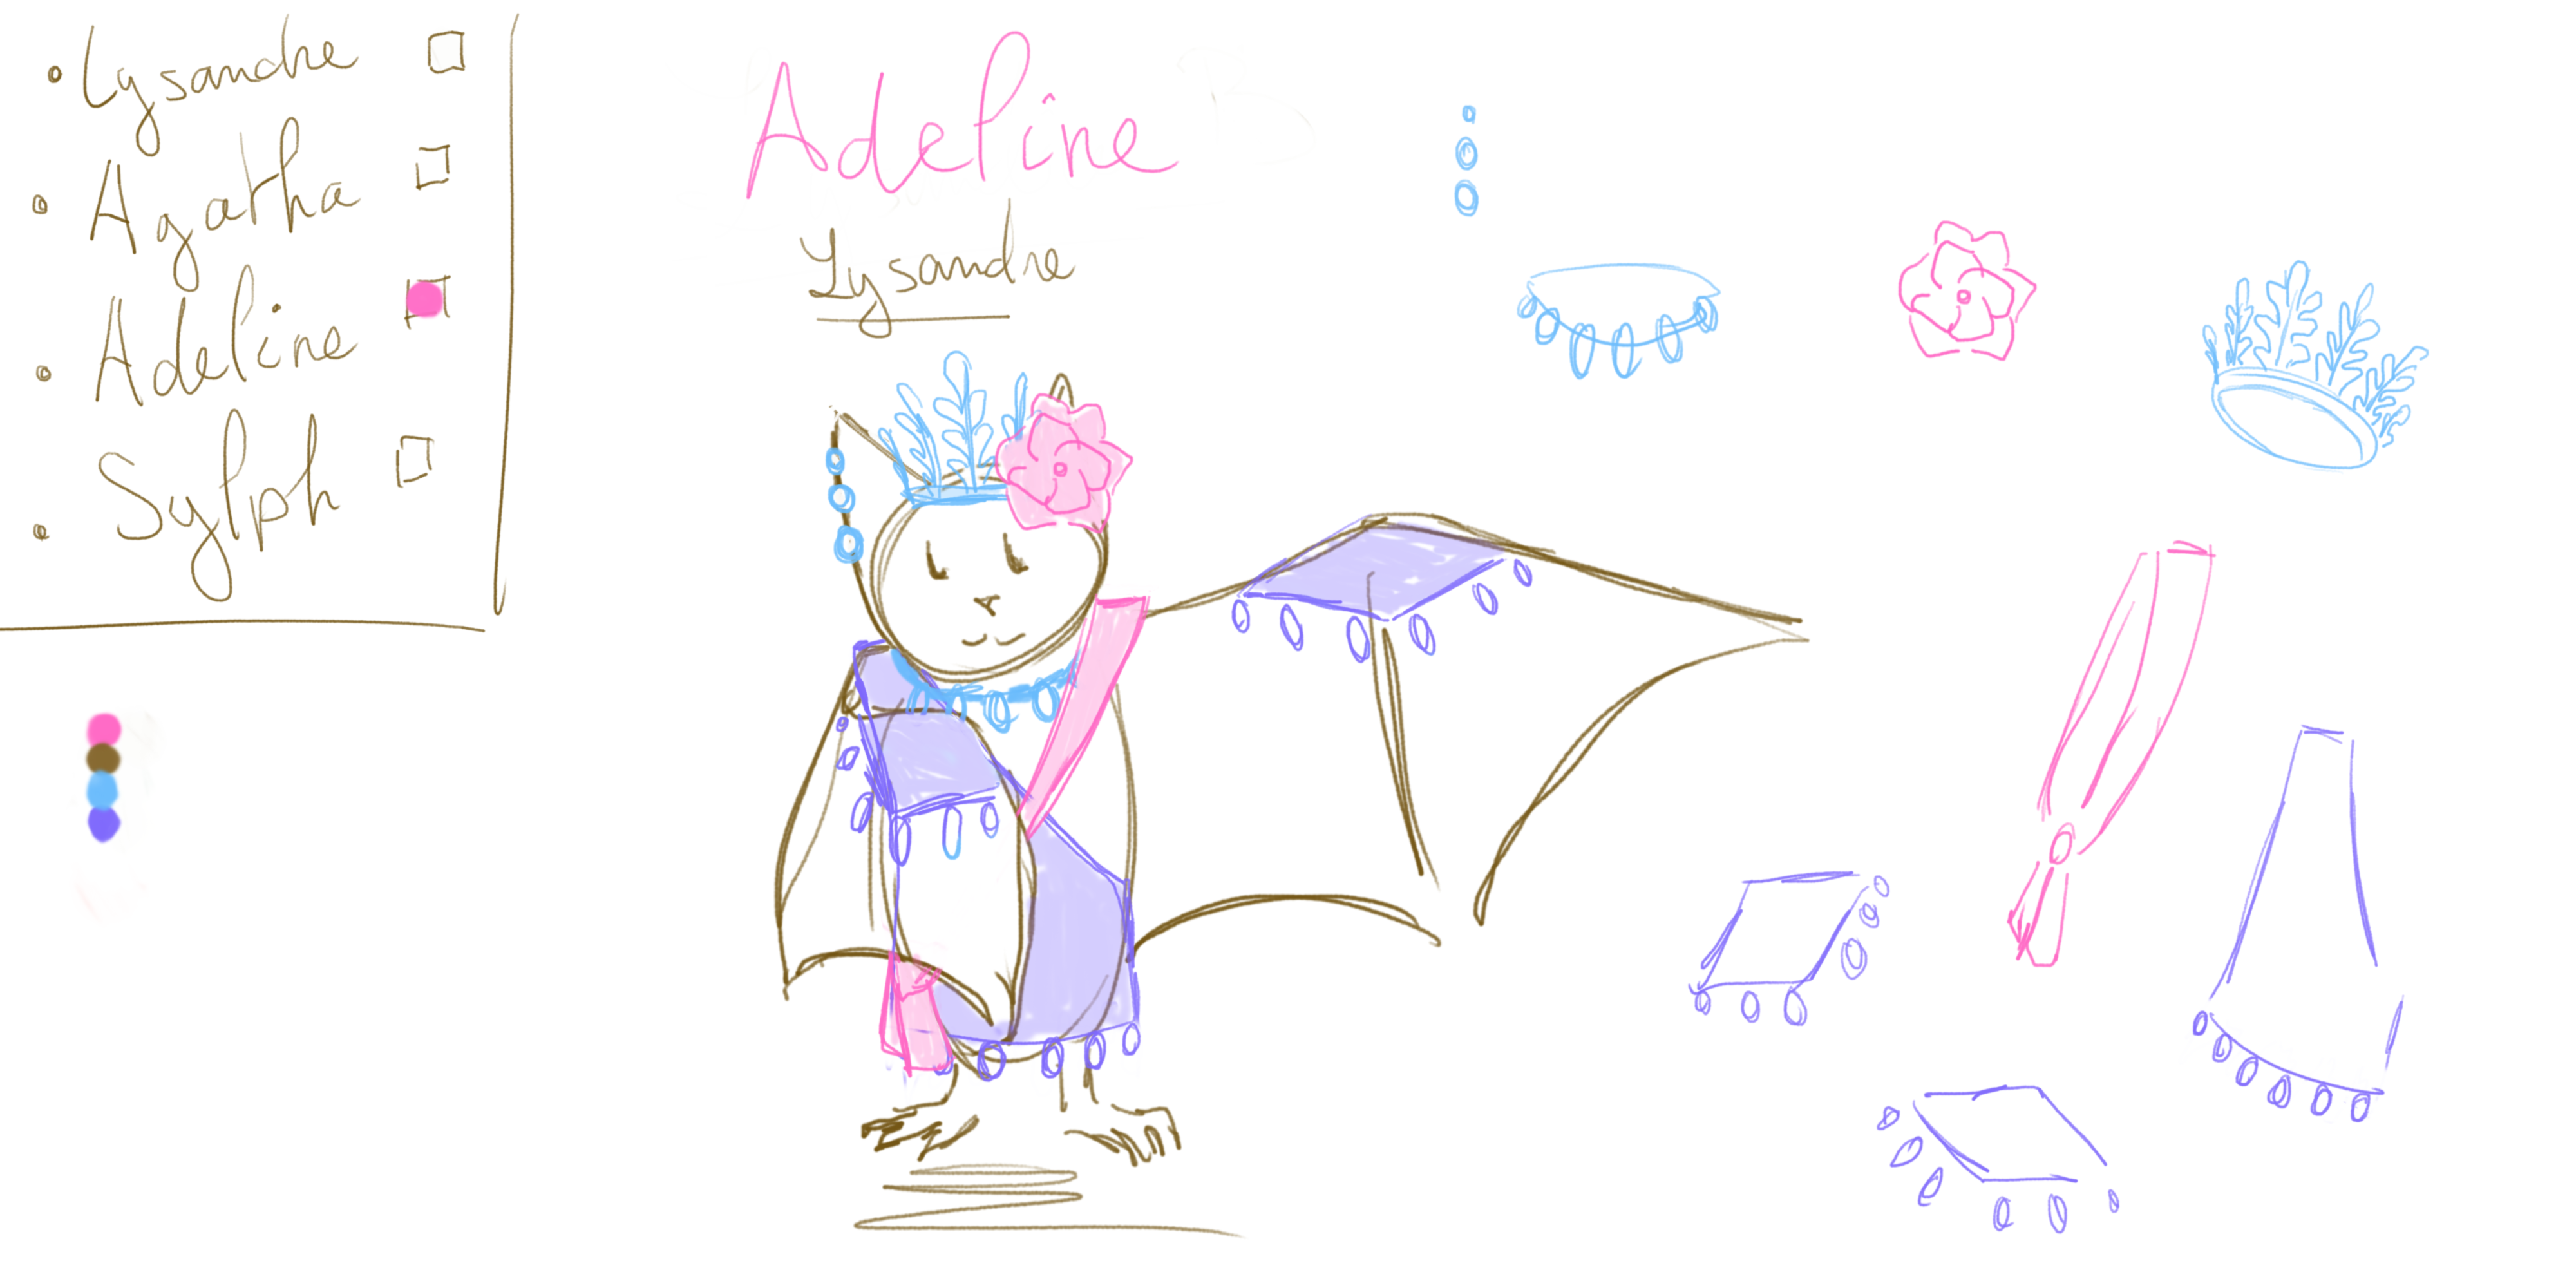 Lysandre
Agatha
Adeline
Sylph
Adeline
Lysandre